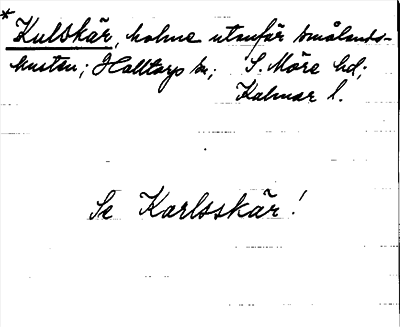 *Kulskär, holme utanför Smålands-
kusten; Halltorps sn; S. Möre hd;
Kalmar l.
Se Karlsskär!